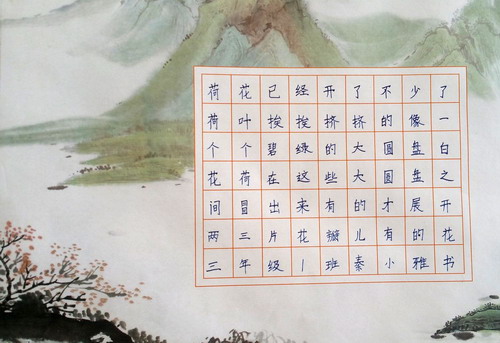 荷花已经开了不少了
荷叶挨挨挤挤的像一
个个碧绿的大圆盘白
花荷在这些大圆盘之
间冒出来有的才展开
两三片花瓣儿有的花
三年级1班秦小雅书